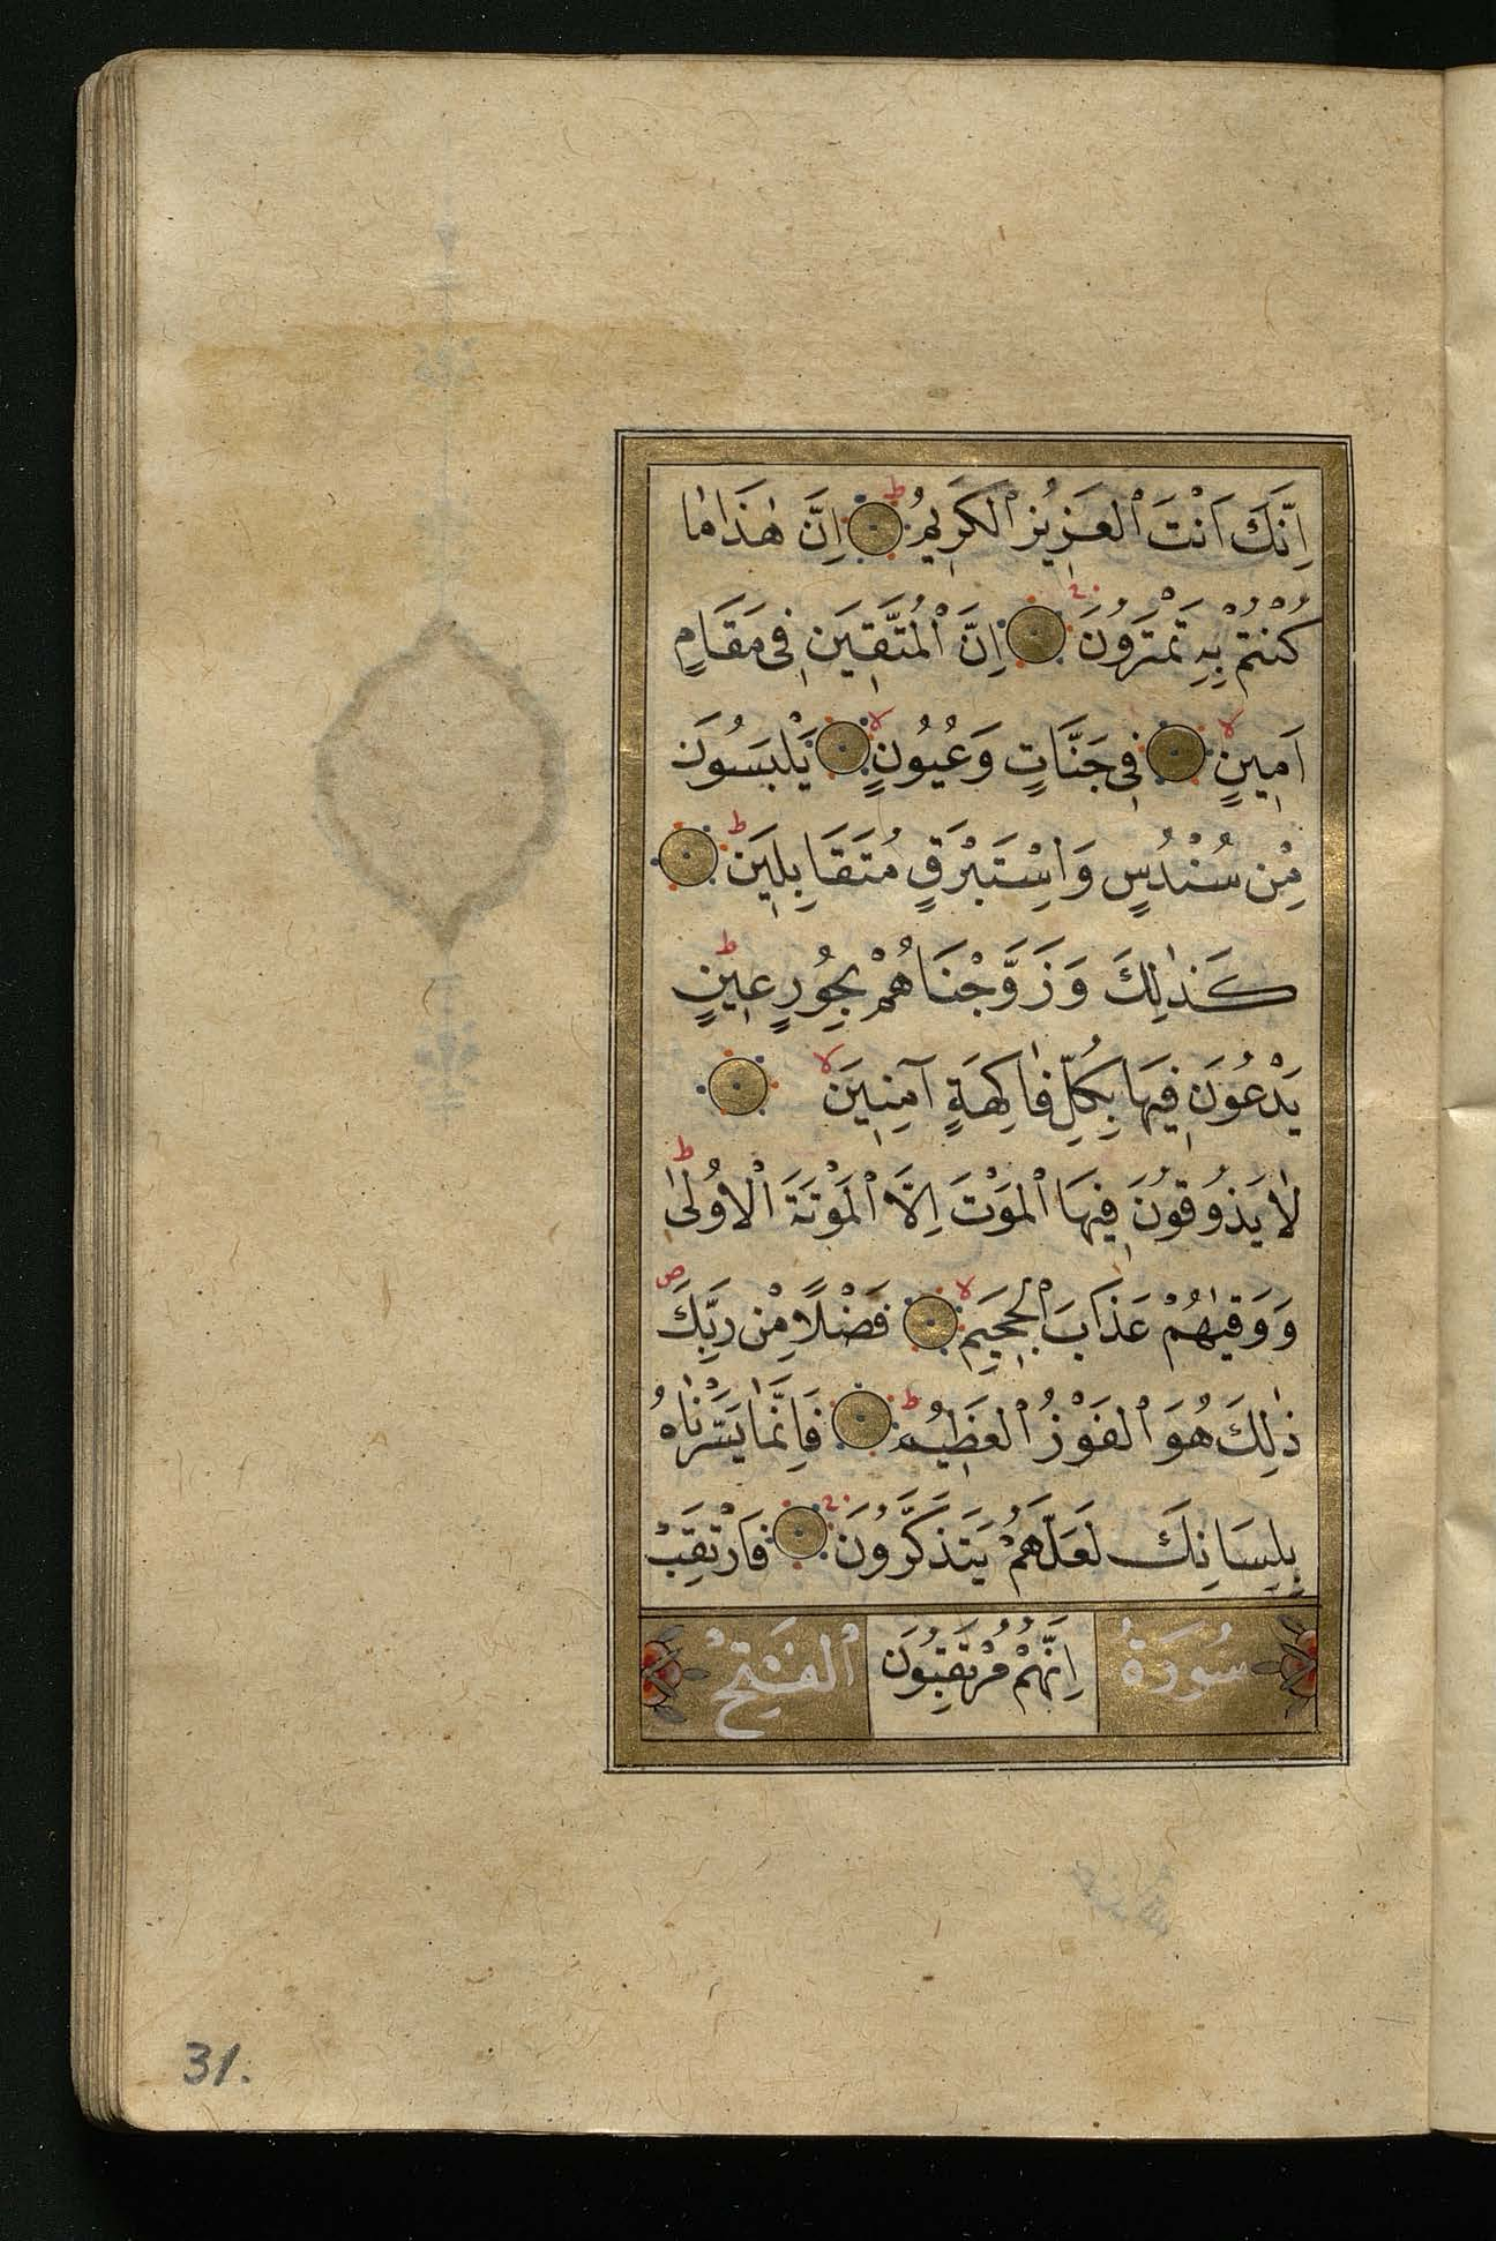 اِنَّكَ اَنْتَ الْعَزِيزُ الْكَرِيمُ ط اِنَّ هٰذَا مٰا
كُنْتُمْ بِهِ تَمْتَرُونَ اِنَّ الْمُتَّقِينَ فِى مَقَامٍ
اَمِينٍ لا فِى جَنَّاتٍ وَعُيُونٍ لا يَلْبَسُونَ
مِنْ سُنْدُسٍ وَاِسْتَبْرَقٍ مُتَقَابِلِينَ ط
كَذٰلِكَ وَزَوَّجْنَاهُمْ بِحُورٍ عِينٍ ط
يَدْعُونَ فِيهَا بِكُلِّ فٰاكِهَةٍ آمِنِينَ لا
لاٰ يَذُوقُونَ فِيهَا الْمَوْتَ اِلَّا الْمَوْتَةَ الْاُولىٰ ط
وَوَقٰيهُمْ عَذَابَ الْجَحِيمِ لا فَضْلًا مِنْ رَبِّكَ ص
ذٰلِكَ هُوَ الْفَوْزُ الْعَظِيمُ ط فَاِنَّمٰا يَسَّرْنٰاهُ
بِلِسَانِكَ لَعَلَّهُمْ يَتَذَكَّرُونَ فَارْتَقِبْ
سُورَةُ اِنَّهُمْ مُرْتَقِبُونَ الْفَتْحِ
31.